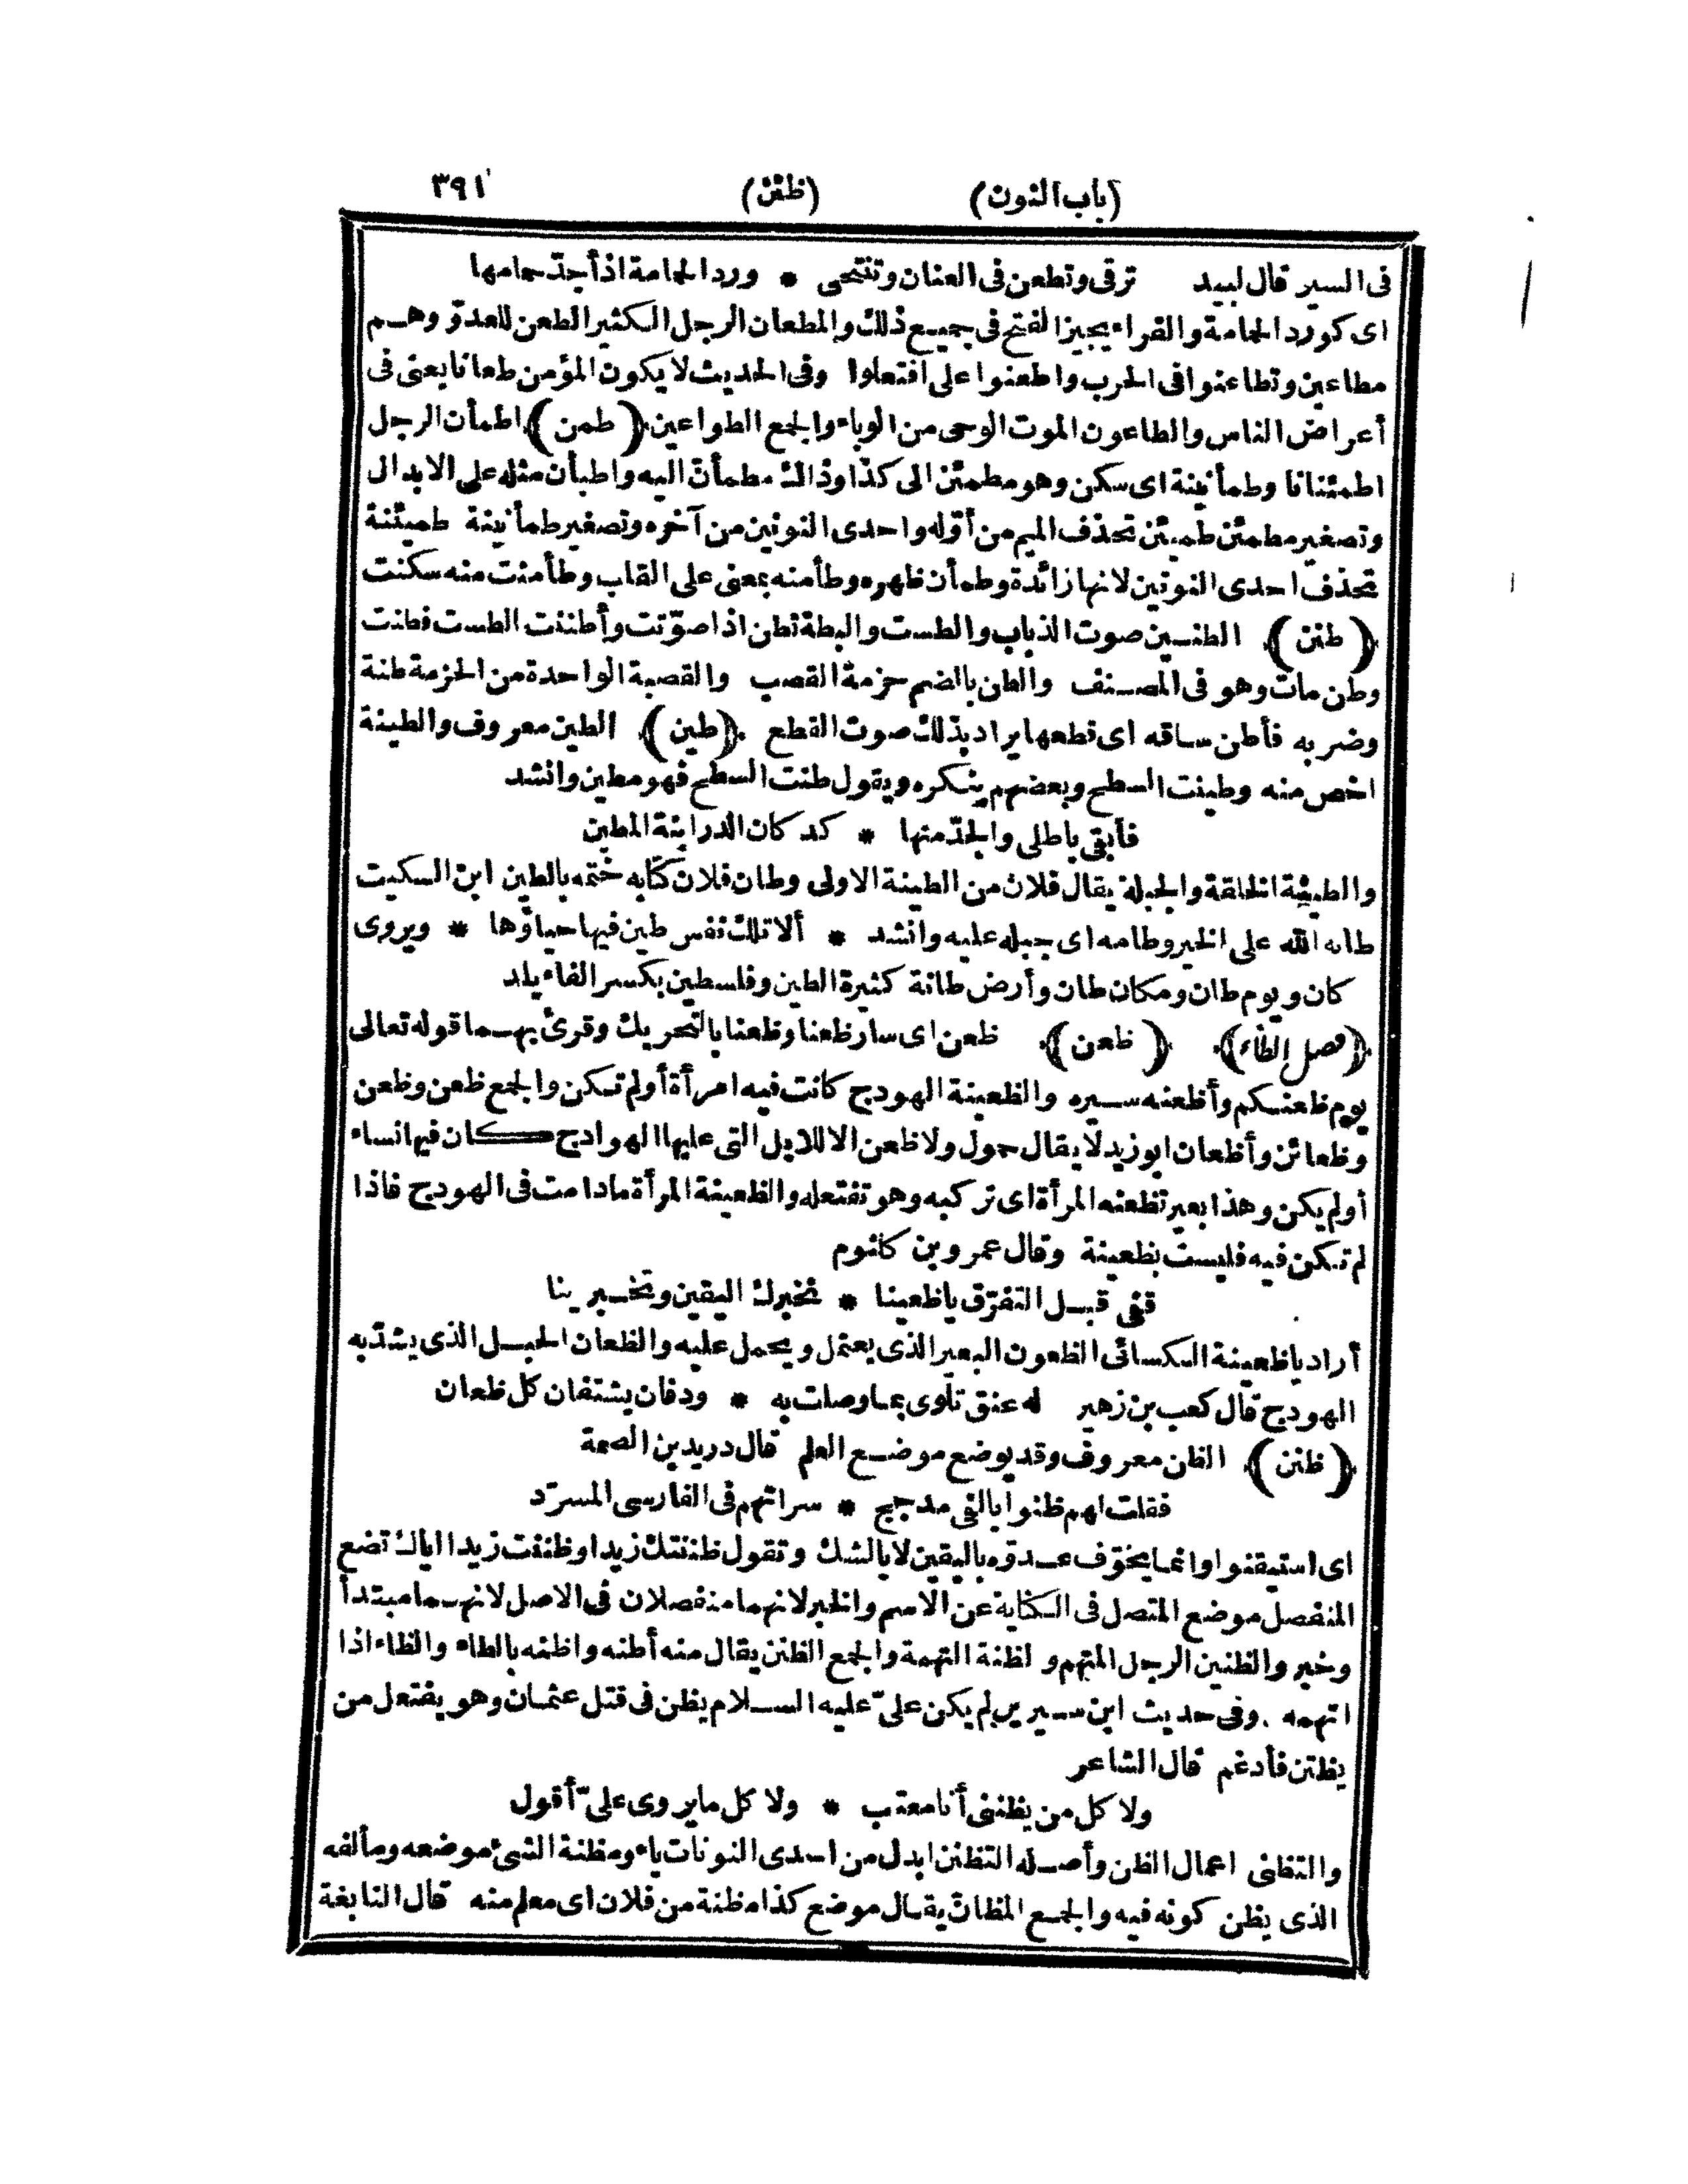 (باب النون) (ظنن) ٣٩١
فى السير قال لبيد ترقى وتطعن فى العنان وتنتحى * ورد الحمامة اذ أجدّ حمامها
اى كورد الحمامة والفراء يجيز الفتح فى جميع ذلك والمطعان الرجل الكثير الطعن للعدوّ وهم
مطاعين وتطاعنوا فى الحرب واطعنوا على افتعلوا وفى الحديث لا يكون المؤمن طعانا يعنى فى
أعراض الناس والطاعون الموت الوحى من الوباء والجمع الطواعين ﴿طمن﴾ اطمأن الرجل
اطمئنانا وطمأنينة اى سكن وهو مطمئن الى كذا وذاك مطمأنّ اليه واطبأن مثله على الابدال
وتصغير مطمئن طميئن تحذف الميم من أوّله واحدى النونين من آخره وتصغير طمأنينة طميئنة
تحذف احدى النونين لانها زائدة وطمأن ظهره وطأمنه بمعنى على القلب وطأمنت منه سكنت
﴿طنن﴾ الطنين صوت الذباب والطست والبطة تطن اذا صوّتت وأطننت الطست فطنت
وطن مات وهو فى المصنف والطن بالضم حزمة القصب والقصبة الواحدة من الحزمة طنة
وضربه فأطن ساقه اى قطعها يراد بذلك صوت القطع ﴿طين﴾ الطين معروف والطينة
اخص منه وطينت السطح وبعضهم ينكره ويقول طنت السطح فهو مطين وانشد
فأبقى باطلى والجدّ منها * كدكان الدرابنة المطين
والطينة الخلقة والجبلة يقال فلان من الطينة الاولى وطان فلان كتابه ختمه بالطين ابن السكيت
طانه الله على الخير وطامه اى جبله عليه وانشد * ألا تلك نفس طين فيها حياؤها * ويروى
كان ويوم طان ومكان طان وأرض طانة كثيرة الطين وفلسطين بكسر الفاء بلد
﴿فصل الظاء﴾ ﴿ظعن﴾ ظعن اى سار ظعنا وظعنا بالتحريك وقرئ بهما قوله تعالى
يوم ظعنكم وأظعنه سيره والظعينة الهودج كانت فيه امرأة أو لم تكن والجمع ظعن وظعن
وظعائن وأظعان ابو زيد لا يقال حمول ولا ظعن الا للابل التى عليها الهوادج كان فيها نساء
أو لم يكن وهذا بعير تظعنه المرأة اى تركبه وهو تفتعله والظعينة المرأة مادامت فى الهودج فاذا
لم تكن فيه فليست بظعينة وقال عمرو بن كلثوم
قفى قبل التفرّق ياظعينا * نخبرك اليقين وتخبرينا
أراد ياظعينة الكسائى الظعون البعير الذى يعتمل ويحمل عليه والظعان الحبل الذى يشدّ به
الهودج قال كعب بن زهير له عنق تلوى بما وصلت به * ودفان يشتفان كل ظعان
﴿ظنن﴾ الظن معروف وقد يوضع موضع العلم قال دريد بن الصمة
فقلت لهم ظنوا بالفى مدجج * سراتهم فى الفارسى المسرّد
اى استيقنوا وانما يخوّف عدوّه باليقين لا بالشك وتقول ظننتك زيدا وظننت زيدا اياك تضع
المنفصل موضع المتصل فى الكناية عن الاسم والخبر لانهما منفصلان فى الاصل لانهما مبتدأ
وخبر والظنين الرجل المتهم و لظنة التهمة والجمع الظنن يقال منه أطنه واظنه بالطاء والظاء اذا
اتهمه . وفى حديث ابن سيرين لم يكن علىّ عليه السلام يظن فى قتل عثمان وهو يفتعل من
يظتن فأدغم قال الشاعر
ولا كل من يظننى أنا معتب * ولا كل ما يروى علىّ أقول
والتظنى اعمال الظن وأصله التظنن ابدل من احدى النونات ياء ومظنة الشئ موضعه ومألفه
الذى يظن كونه فيه والجمع المظانّ يقال موضع كذا مظنة من فلان اى معلم منه قال النابغة